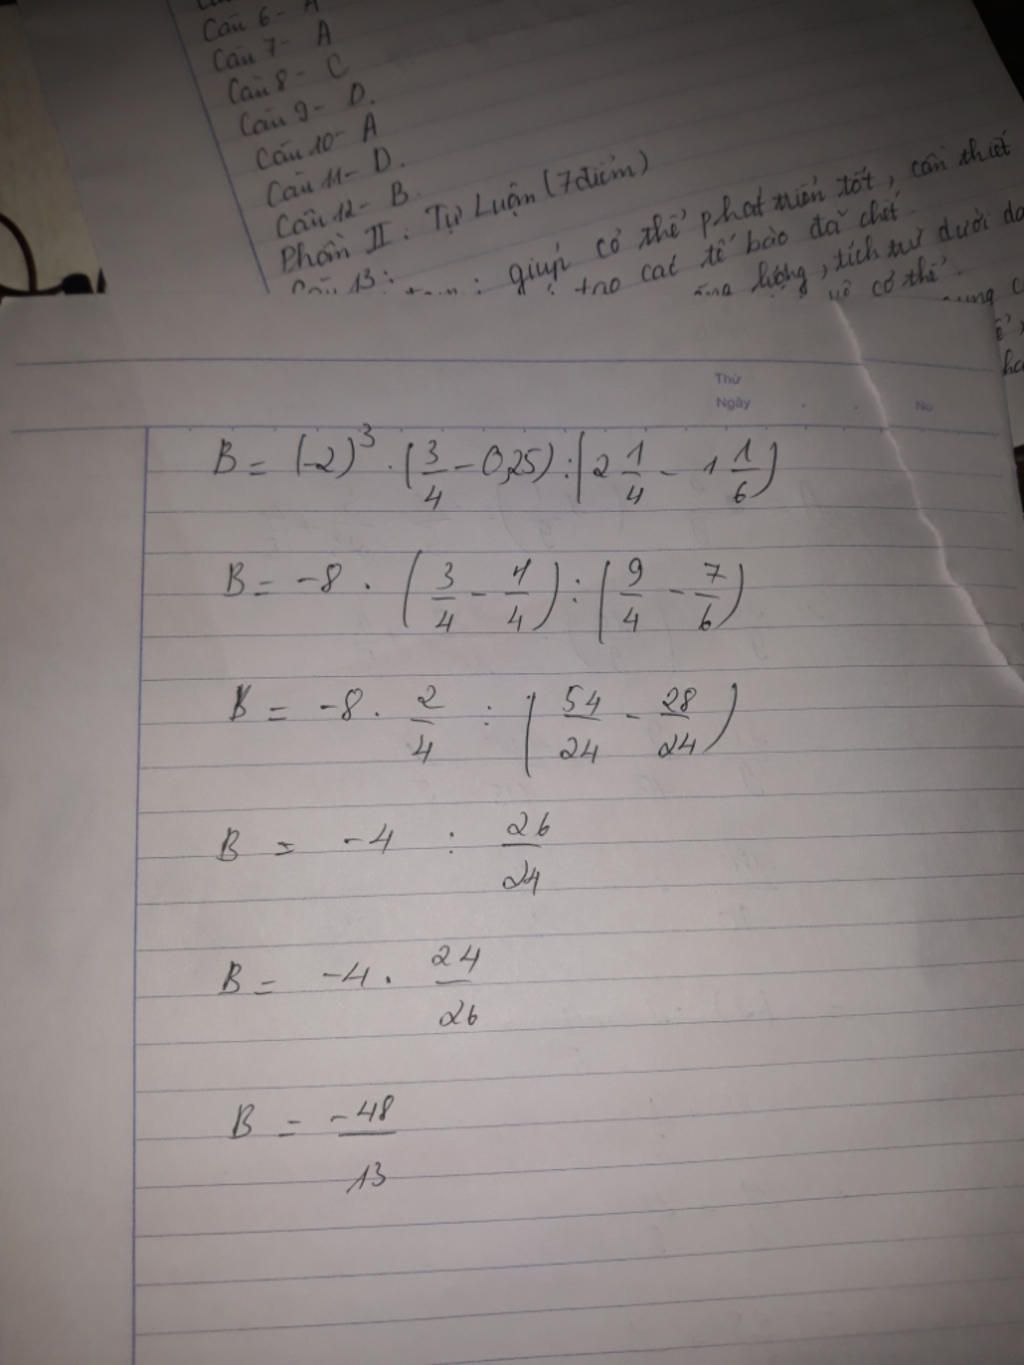 Câu 6- A
Câu 7- A
Câu 8- C
Câu 9- D.
Câu 10- A
Câu 11- D.
Câu 12- B.
Phần II: Tự Luận (7 điểm)
Câu 13:
: giúp cơ thể phát triển tốt, cần thiết
tạo các tế bào đã chết.
lượng, tích trữ dưới da
cơ thể.
Thứ
Ngày . . No
B = (-2)³ . (3/4 - 0,25) : (2 1/4 - 1 1/6)
B = -8 . (3/4 - 1/4) : (9/4 - 7/6)
B = -8 . 2/4 : (54/24 - 28/24)
B = -4 : 26/24
B = -4 . 24/26
B = -48/13